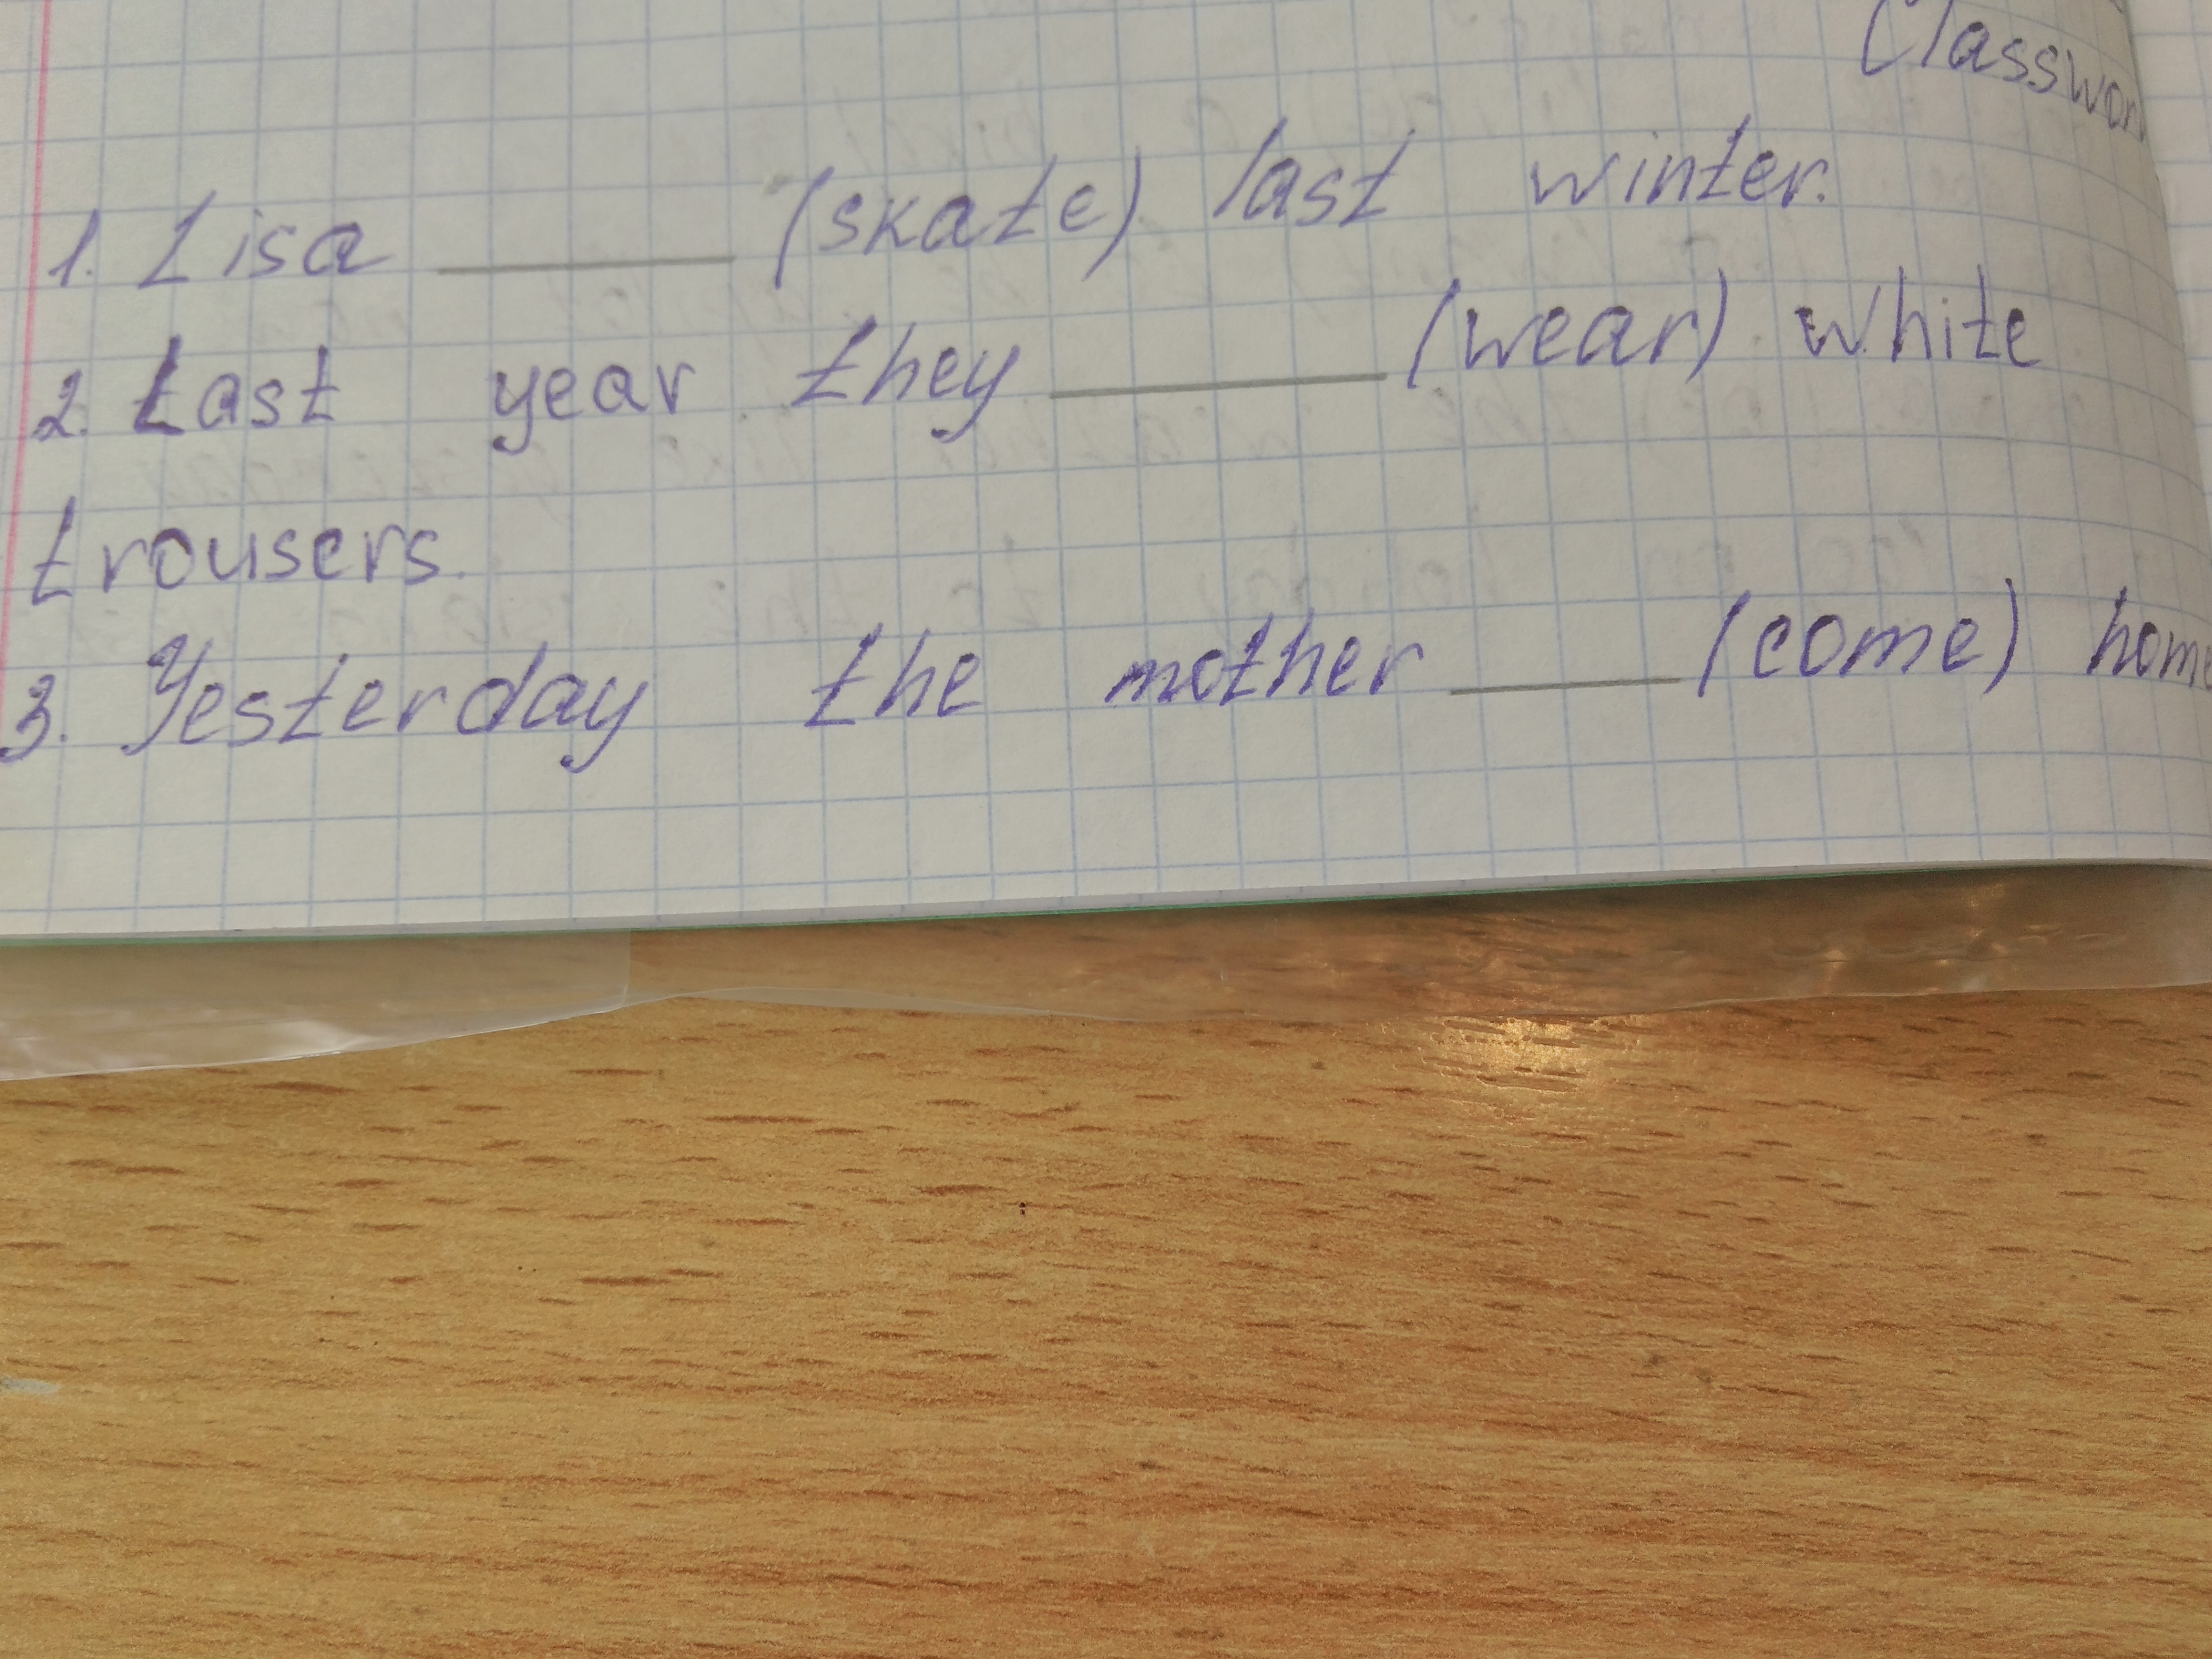 1. Lisa ______ (skate) last winter.
2. Last year they ______ (wear) white
trousers.
3. Yesterday the mother ______ (come) home